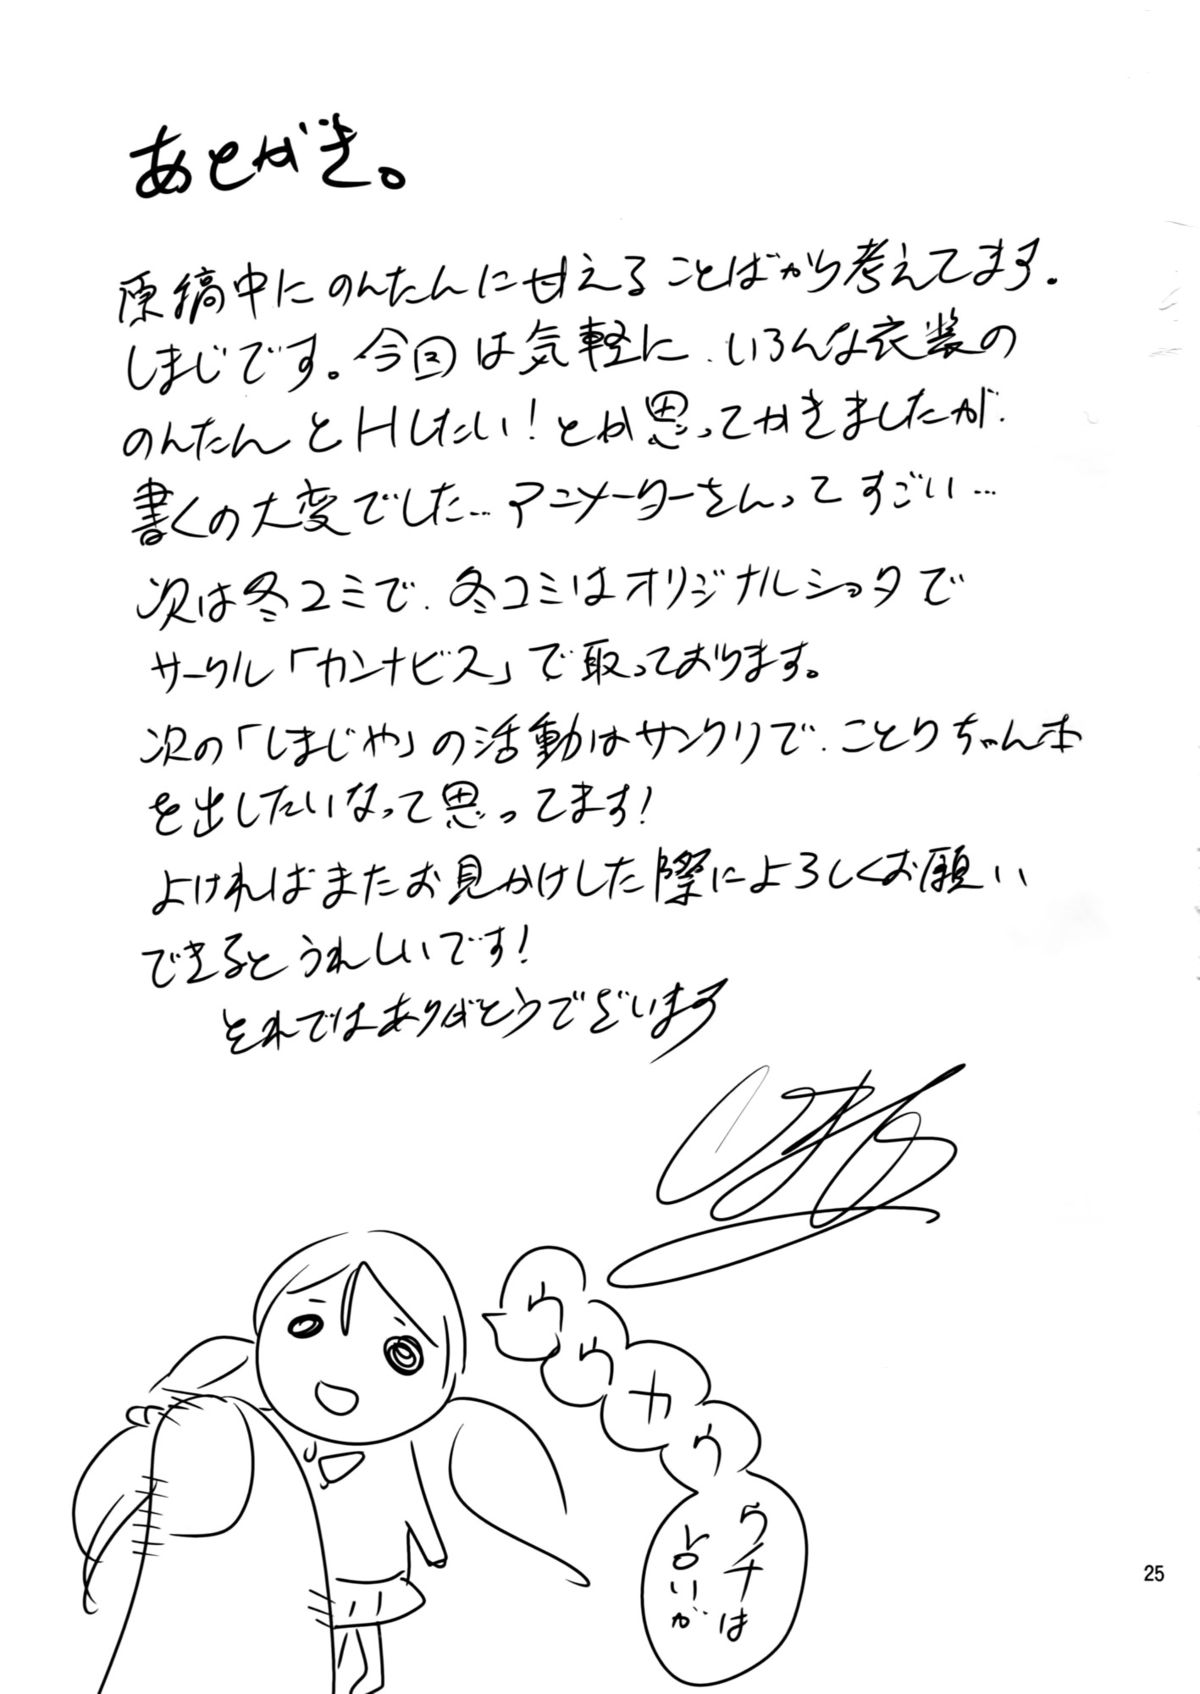 あとがき。
原稿中にのんたんに甘えることばかり考えてます.
しまじです。今回は気軽に、いろんな衣装の
のんたんとHしたい!とか思ってかきましたが、
書くの大変でした…アニメーターさんってすごい…
次は冬コミで、冬コミはオリジナルショタで
サークル「カンナビス」で取っております。
次の「しまじや」の活動はサンクリで、ことりちゃん本
を出したいなって思ってます!
よければまたお見かけした際によろしくお願い
できるとうれしいです!
それではありがとうございます
ウ
ウ
カ
ウ
ウチは
25